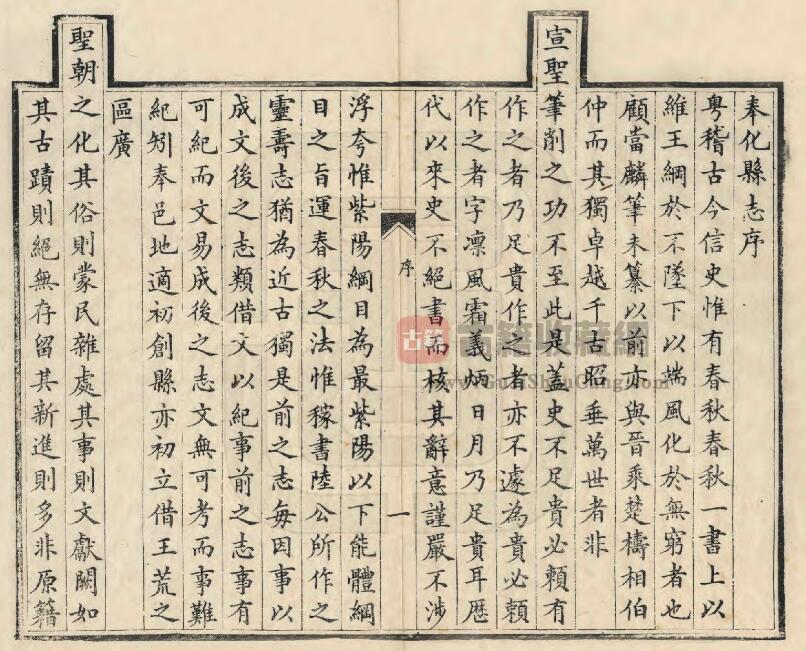 奉化縣志序
粵稽古今信史惟有春秋春秋一書上以
維王綱於不墜下以端風化於無窮者也
顧當麟筆未纂以前亦與晉乘楚檮相伯
仲而其獨卓越千古昭垂萬世者非
宣聖筆削之功不至此是蓋史不足貴必賴有
作之者乃足貴作之者亦不遽為貴必賴
作之者字凛風霜義炳日月乃足貴耳歷
代以來史不絕書而核其辭意謹嚴不涉
序
一
浮夸惟紫陽綱目為最紫陽以下能體綱
目之旨運春秋之法惟稼書陸公所作之
靈壽志猶為近古獨是前之志每因事以
成文後之志類借文以紀事前之志事有
可紀而文易成後之志文無可考而事難
紀矧奉邑地適初創縣亦初立借王荒之
區廣
聖朝之化其俗則蒙民雜處其事則文獻闕如
其古蹟則絕無存留其新進則多非原籍
古籍
古籍收藏網